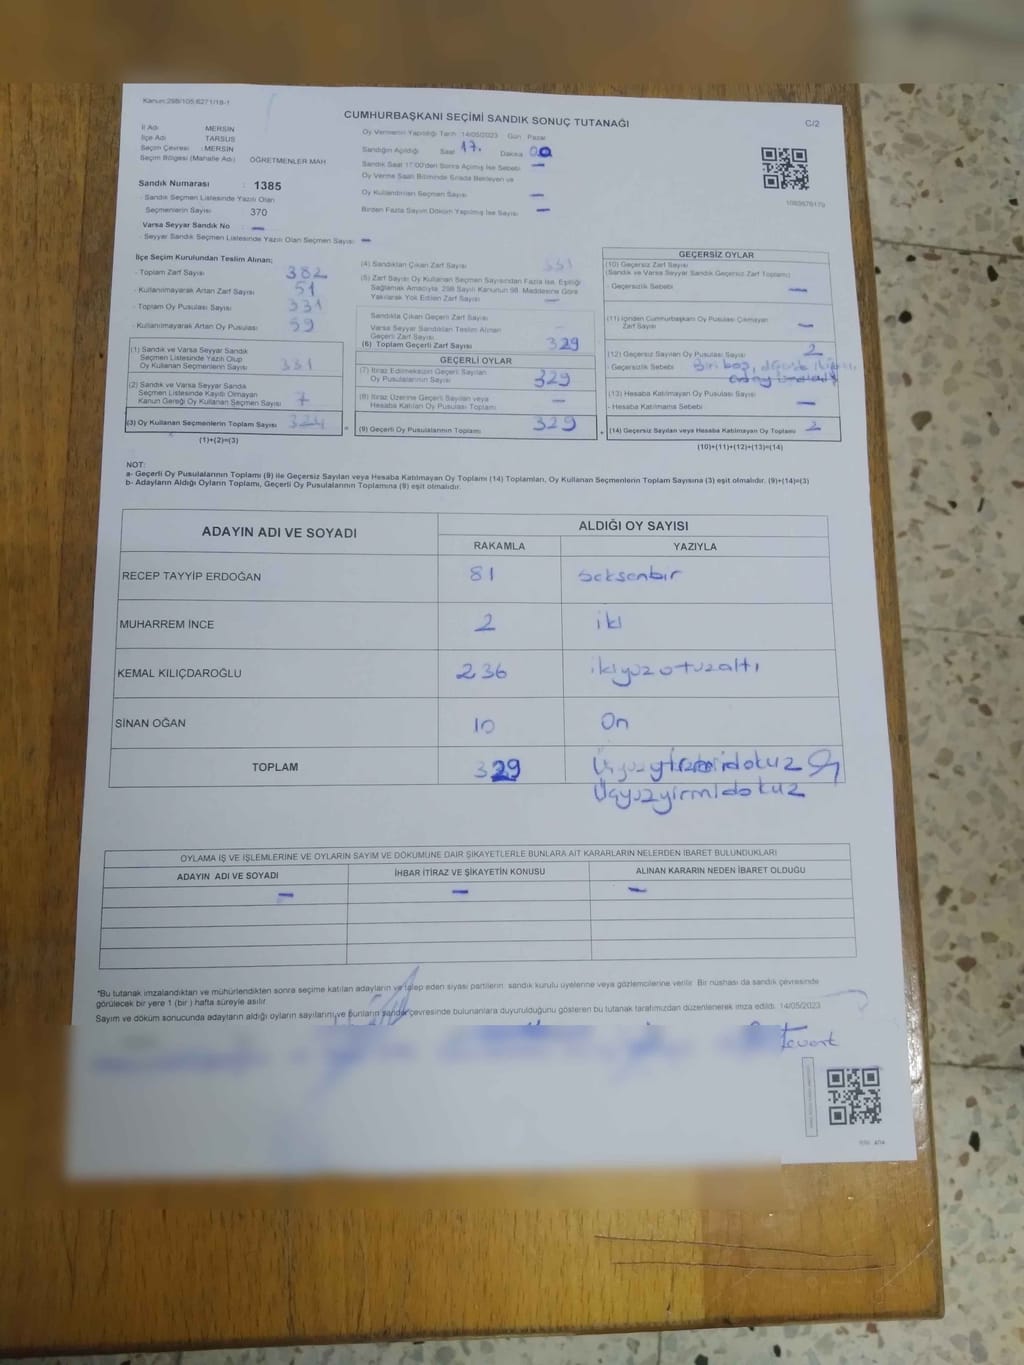 Kanun:298/105:6271/18-1
CUMHURBAŞKANI SEÇİMİ SANDIK SONUÇ TUTANAĞI
C/2
İl Adı MERSİN
İlçe Adı TARSUS
Seçim Çevresi : MERSİN
Seçim Bölgesi (Mahalle Adı) ÖĞRETMENLER MAH
Oy Vermenin Yapıldığı Tarih 14/05/2023 Gün Pazar
Sandığın Açıldığı Saat 17. Dakika 00
Sandık Saat 17:00'den Sonra Açılmış İse Sebebi —
Oy Verme Saati Bitiminde Sırada Bekleyen ve
Oy Kullandırılan Seçmen Sayısı —
Birden Fazla Sayım Döküm Yapılmış İse Sayısı —
Sandık Numarası : 1385
- Sandık Seçmen Listesinde Yazılı Olan
Seçmenlerin Sayısı 370
Varsa Seyyar Sandık No —
- Seyyar Sandık Seçmen Listesinde Yazılı Olan Seçmen Sayısı —
İlçe Seçim Kurulundan Teslim Alınan;
- Toplam Zarf Sayısı 382
- Kullanılmayarak Artan Zarf Sayısı 51
- Toplam Oy Pusulası Sayısı 331
- Kullanılmayarak Artan Oy Pusulası 59
(1) Sandık ve Varsa Seyyar Sandık
Seçmen Listesinde Yazılı Olup
Oy Kullanan Seçmenlerin Sayısı 331
(2) Sandık ve Varsa Seyyar Sandık
Seçmen Listesinde Kayıtlı Olmayan
Kanun Gereği Oy Kullanan Seçmen Sayısı 7
(3) Oy Kullanan Seçmenlerin Toplam Sayısı 324
(1)+(2)=(3)
(4) Sandıktan Çıkan Zarf Sayısı 331
(5) Zarf Sayısı Oy Kullanan Seçmen Sayısından Fazla İse, Eşitliği
Sağlamak Amacıyla, 298 Sayılı Kanunun 98. Maddesine Göre
Yakılarak Yok Edilen Zarf Sayısı —
Sandıkta Çıkan Geçerli Zarf Sayısı
Varsa Seyyar Sandıktan Teslim Alınan
Geçerli Zarf Sayısı —
(6) Toplam Geçerli Zarf Sayısı 329
GEÇERLİ OYLAR
(7) İtiraz Edilmeksizin Geçerli Sayılan
Oy Pusulalarının Sayısı 329
(8) İtiraz Üzerine Geçerli Sayılan veya
Hesaba Katılan Oy Pusulası Toplamı —
(9) Geçerli Oy Pusulalarının Toplamı 329
GEÇERSİZ OYLAR
(10) Geçersiz Zarf Sayısı
(Sandık ve Varsa Seyyar Sandık Geçersiz Zarf Toplamı)
- Geçersizlik Sebebi —
(11) İçinden Cumhurbaşkanı Oy Pusulası Çıkmayan
Zarf Sayısı —
(12) Geçersiz Sayılan Oy Pusulası Sayısı 2
- Geçersizlik Sebebi Biri boş,
(13) Hesaba Katılmayan Oy Pusulası Sayısı
- Hesaba Katılmama Sebebi —
(14) Geçersiz Sayılan veya Hesaba Katılmayan Oy Toplamı 2
(10)+(11)+(12)+(13)=(14)
NOT:
a- Geçerli Oy Pusulalarının Toplamı (9) ile Geçersiz Sayılan veya Hesaba Katılmayan Oy Toplamı (14) Toplamları, Oy Kullanan Seçmenlerin Toplam Sayısına (3) eşit olmalıdır. (9)+(14)=(3)
b- Adayların Aldığı Oyların Toplamı, Geçerli Oy Pusulalarının Toplamına (9) eşit olmalıdır.
ADAYIN ADI VE SOYADI ALDIĞI OY SAYISI
RAKAMLA YAZIYLA
RECEP TAYYİP ERDOĞAN 81 seksenbir
MUHARREM İNCE 2 iki
KEMAL KILIÇDAROĞLU 236 ikiyüzotuzaltı
SİNAN OĞAN 10 On
TOPLAM 329
Üçyüzyirmidokuz
OYLAMA İŞ VE İŞLEMLERİNE VE OYLARIN SAYIM VE DÖKÜMÜNE DAİR ŞİKAYETLERLE BUNLARA AİT KARARLARIN NELERDEN İBARET BULUNDUKLARI
ADAYIN ADI VE SOYADI İHBAR İTİRAZ VE ŞİKAYETİN KONUSU ALINAN KARARIN NEDEN İBARET OLDUĞU
— — —
*Bu tutanak imzalandıktan ve mühürlendikten sonra seçime katılan adayların ve talep eden siyasi partilerin, sandık kurulu üyelerine veya gözlemcilerine verilir. Bir nüshası da sandık çevresinde
görülecek bir yere 1 (bir) hafta süreyle asılır.
Sayım ve döküm sonucunda adayların aldığı oyların sayılarını ve bunların sandık çevresinde bulunanlara duyurulduğunu gösteren bu tutanak tarafımızdan düzenlenerek imza edildi. 14/05/2023